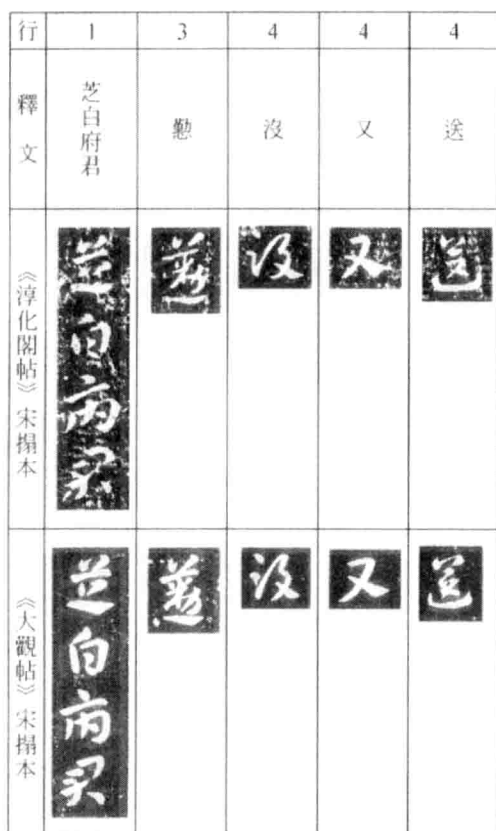 行 1 3 4 4 4
釋文 芝白府君 懃 沒 又 送
《淳化閣帖》宋搨本 芝白府君 懃 沒 又 送
《大觀帖》宋搨本 芝白府君 懃 沒 又 送